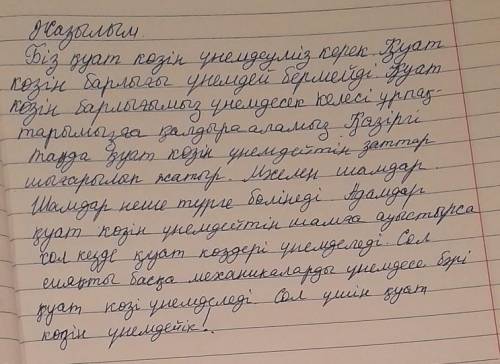 Жазылым.
Біз қуат көзін үнемдеуміз керек. Қуат
көзін барлығы үнемдей бермейді. Қуат
көзін барлығымыз үнемдесек келесі ұрпақ-
тарымызға қалдыра аламыз. Қазіргі
таңда қуат көзін үнемдейтін заттар
шығарылып жатыр. Мәселен шамдар.
Шамдар неше түрге бөлінеді. Адамдар
қуат көзін үнемдейтін шамға ауыстырса
сол кезде қуат көздері үнемделеді. Сол
сияқты басқа механикаларды үнемдесе бәрі
қуат көзі үнемделеді. Сол үшін қуат
көзін үнемдейік!.